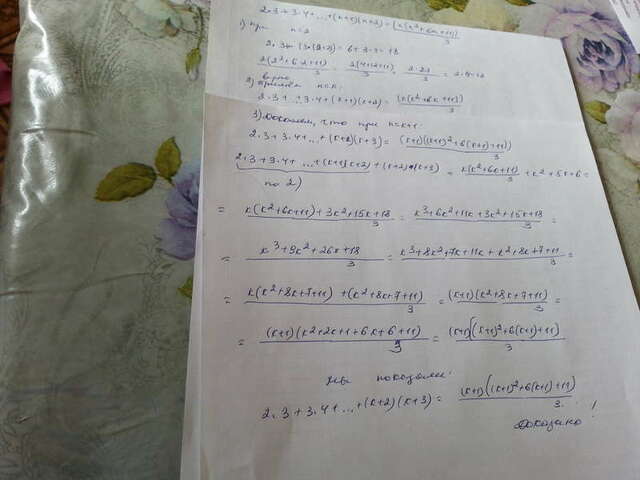 2·3+3·4+...+(k+1)(k+2)=(k(k²+6k+11))/3
1) при n=2
2·3+(3·(2+2))=6+3·4=18
2(2²+6·2+11)/3 = 2(4+12+11)/3 = 2·27/3 = 2·9=18
верно
2) n=k:
2·3+...+3·4+(k+1)(k+2)=(k(k²+6k+11))/3
3) Докажем, что при n=k+1:
2·3+3·4+...+(k+2)(k+3)=((k+1)((k+1)²+6(k+1)+11))/3
2·3+3·4+...+(k+1)(k+2)+(k+2)·(k+3) = k(k²+6k+11)/3 +k²+5k+6=
по 2)
= (k(k²+6k+11)+3k²+15k+18)/3 = (k³+6k²+11k+3k²+15k+18)/3 =
= (k³+9k²+26k+18)/3 = (k³+8k²+7k+11k+k²+8k+7+11)/3 =
= (k(k²+8k+7+11)+(k²+8k+7+11))/3 = (k+1)(k²+8k+7+11)/3 =
= (k+1)(k²+2k+1+6k+6+11)/3 = (k+1)((k+1)²+6(k+1)+11)/3
мы показали:
2·3+3·4+...+(k+2)(k+3)= (k+1)((k+1)²+6(k+1)+11)/3.
Доказано!